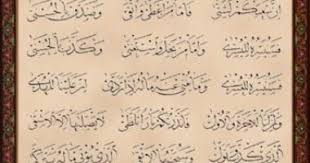 إِنَّ سَعْيَكُمْ لَشَتَّى فَأَمَّا مَنْ أَعْطَى وَاتَّقَى وَصَدَّقَ بِالْحُسْنَى
فَسَنُيَسِّرُهُ لِلْيُسْرَى وَأَمَّا مَنْ بَخِلَ وَاسْتَغْنَى وَكَذَّبَ بِالْحُسْنَى
فَسَنُيَسِّرُهُ لِلْعُسْرَى وَمَا يُغْنِي عَنْهُ مَالُهُ إِذَا تَرَدَّى إِنَّ عَلَيْنَا لَلْهُدَى
وَإِنَّ لَنَا لَلْآخِرَةَ وَالْأُولَى فَأَنْذَرْتُكُمْ نَارًا تَلَظَّى لَا يَصْلَاهَا إِلَّا الْأَشْقَى
الَّذِي كَذَّبَ وَتَوَلَّى وَسَيُجَنَّبُهَا الْأَتْقَى الَّذِي يُؤْتِي مَالَهُ يَتَزَكَّى